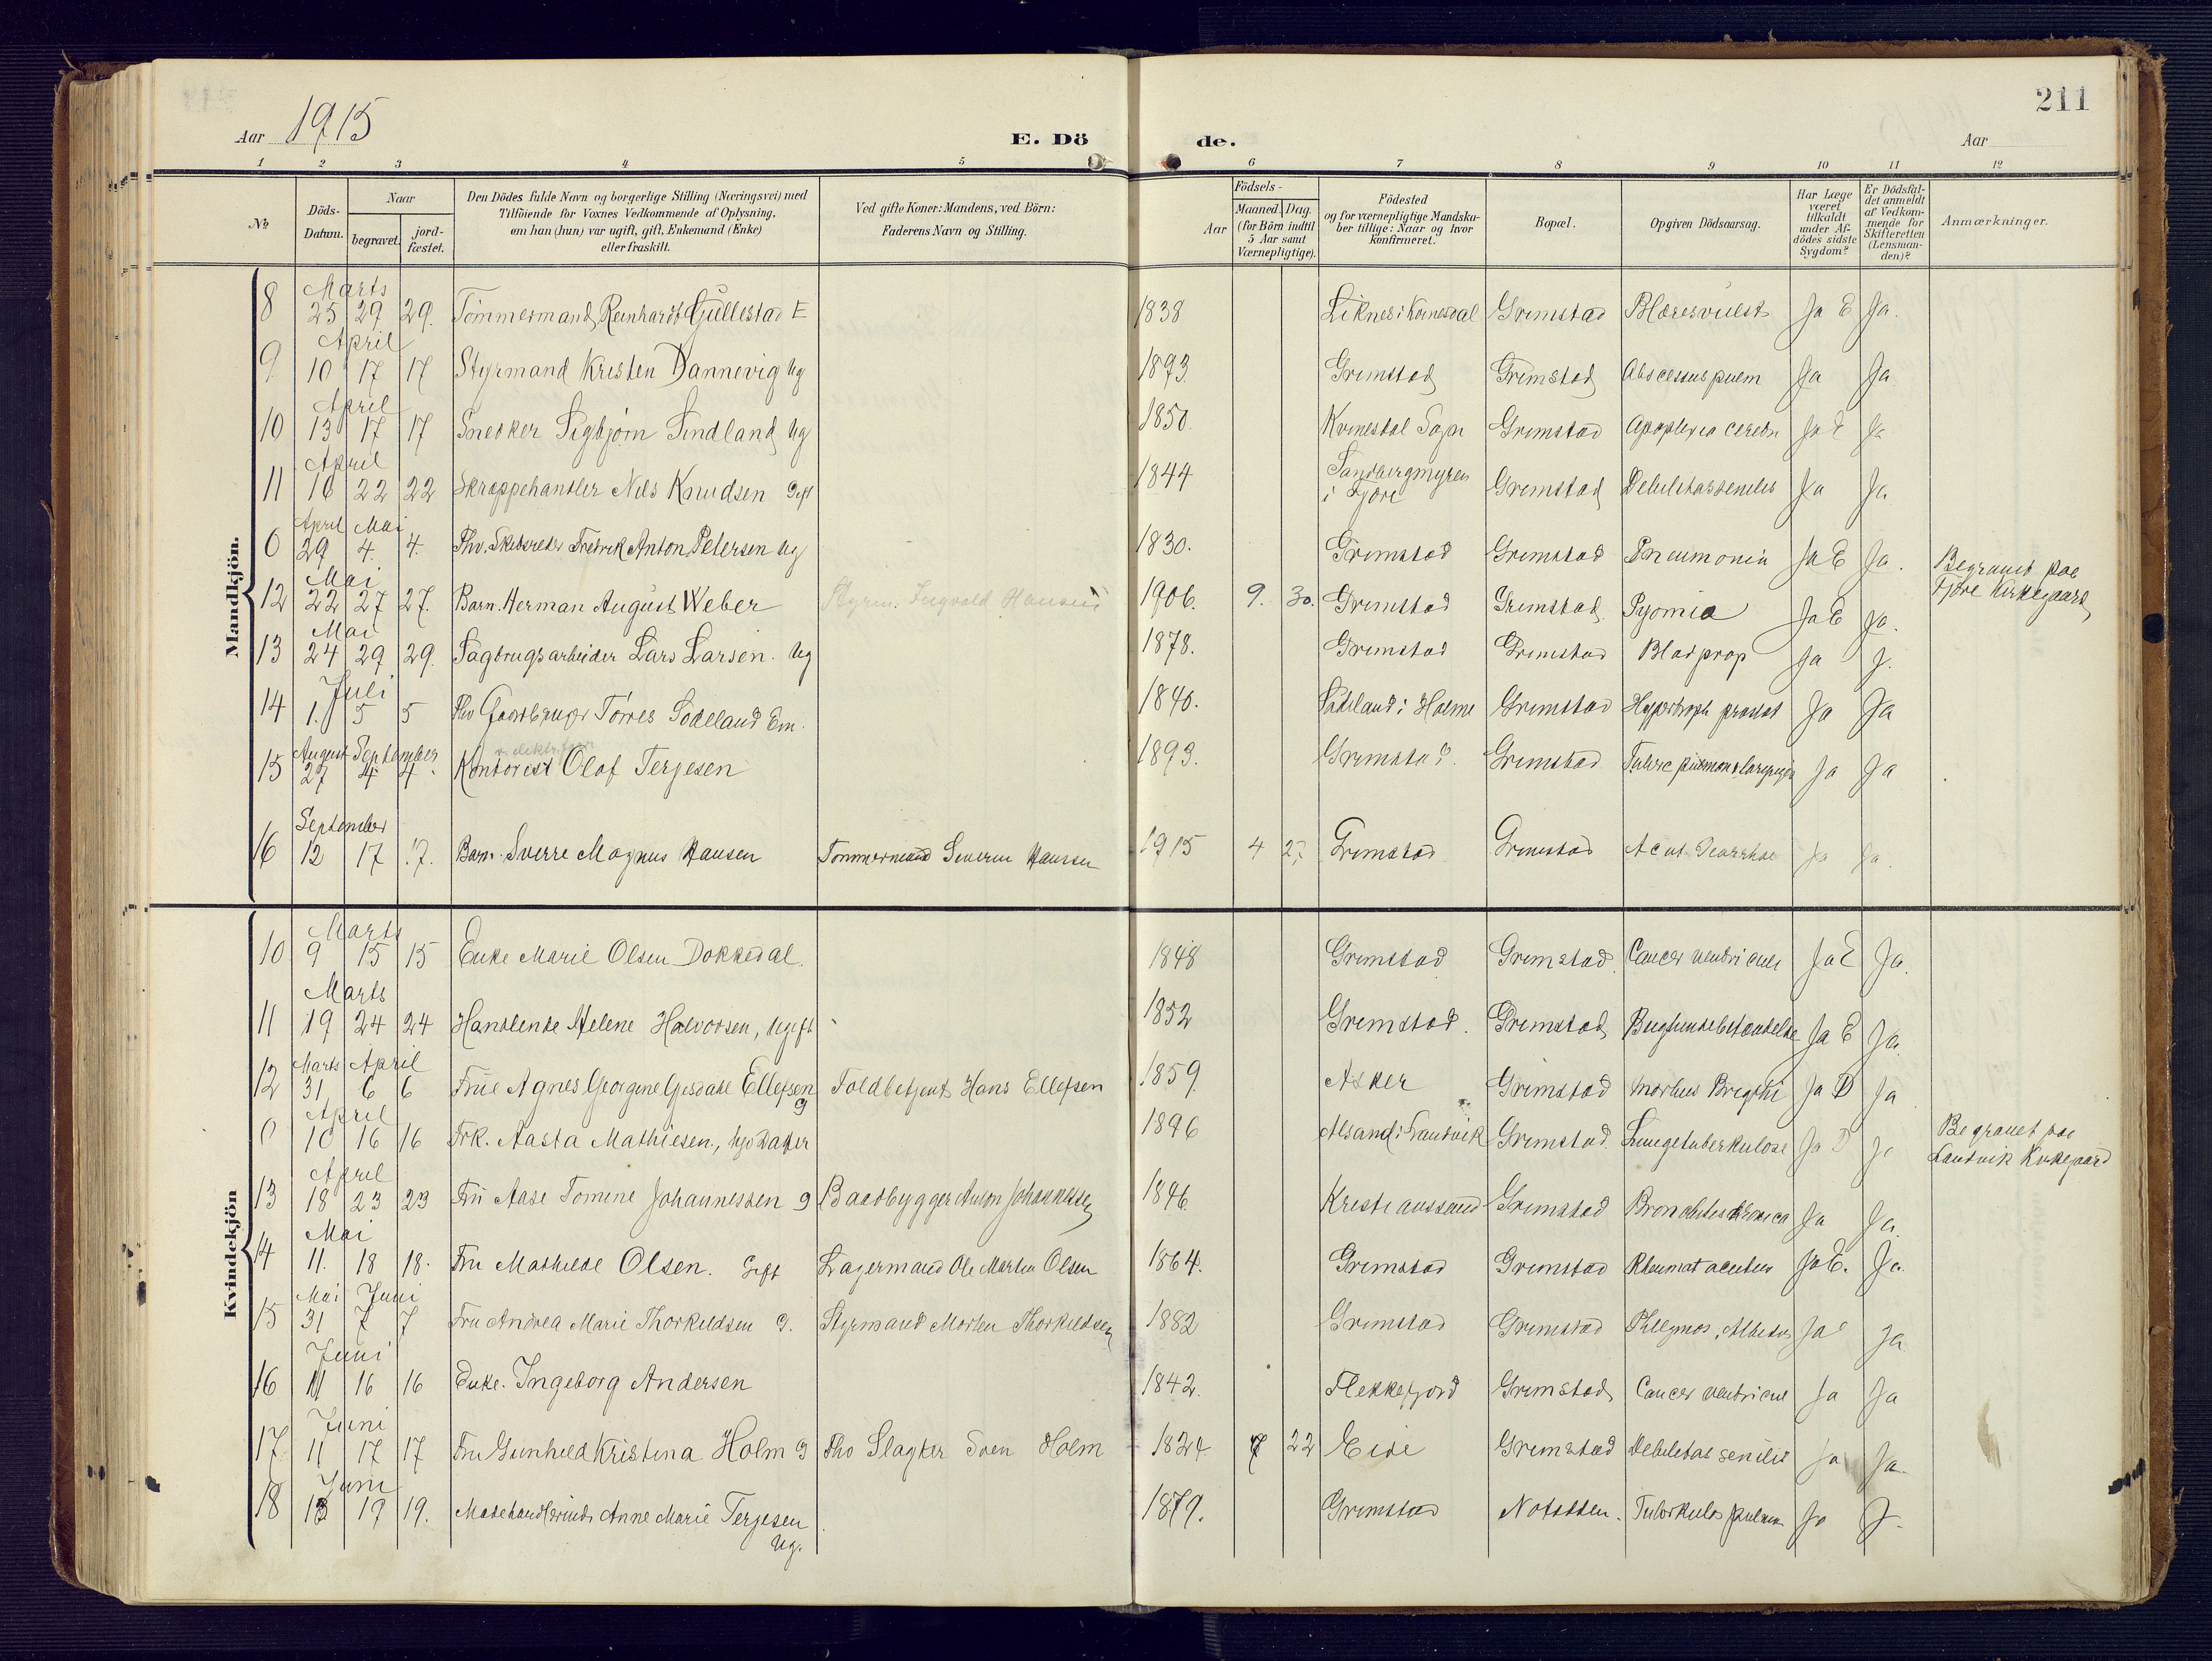 211
Aar 1915
E. Dö de.
Aar
1 2 3 4 5 6 7 8 9 10 11 12
No
Döds-Datum.
Naar
begravet.
jord-fæstet.
Den Dödes fulde Navn og borgerlige Stilling (Næringsvei) med
Tilföiende for Voxnes Vedkommende af Oplysning,
om han (hun) var ugift, gift, Enkemand (Enke)
eller fraskilt.
Ved gifte Koner: Mandens, ved Börn:
Faderens Navn og Stilling.
Födsels-
Aar
Maaned. Dag.
(for Börn indtil
5 Aar samt
Værnepligtige).
Födested
og for værnepligtige Mandska-
ber tillige: Naar og hvor
konfirmeret.
Bopæl.
Opgiven Dödsaarsag.
Har Læge
været
tilkaldt
under Af-
dödes sidste
Sygdom?
Er Dödsfal-
det anmeldt
af Vedkom-
mende for
Skifteretten
(Lensman-
den)?
Anmærkninger.
Mandkjön.
Marts
8 25 29 29. Tömmermand Reinhardt Gullestad E 1838 Liknes i Kvinesdal Grimstad Blæresvulst Ja E Ja.
April
9 10 17 17 Styrmand Kristen Dannevig Ug 1893 Grimstad Grimstad Abscessus pulm Ja Ja
April
10 13 17 17 Snedker Sigbjørn Sindland Ug 1850. Kvinesdal Sogn Grimstad Apoplexia cerebri Ja E Ja
April
11 16 22 22 Skrappehandler Nils Knudsen Gift 1844 Sandbergmyren
i Fjære Grimstad Debilitas senilis Ja Ja
April Mai
0 29 4. 4. Fhv. Skibsreder Fredrik Anton Petersen Ug 1830. Grimstad Grimstad Pneumonia Ja E Ja. Begravet paa
Fjære Kirkegaard
Mai
12 22 27 27. Barn. Herman August Weber Styrm. Ingvald Hansen 1906. 9. 30. Grimstad Grimstad Pyomia Ja E Ja.
Mai
13 24 29 29. Sagbrugsarbeider Lars Larsen. Ug 1878. Grimstad Grimstad Blodprop Ja J.
Juli
14 1. 5 5 Fhv Gaardbruger Törres Södeland Em. 1840. Södeland i Holme Grimstad Hypertroph prostat Ja Ja
August September
15 27 4. 4. Kontorist Olaf Terjesen 1893. Grimstad Grimstad Ja Ja
September
16 12 17 17. Barn. Sverre Magnus Hansen Tommermand Severin Hansen 1915 4 27 Grimstad Grimstad Acut Diarrhoe Ja Ja.
Kvindekjön
Marts
10 9 15 15 Enke Marie Olsen Dokkedal. 1848 Grimstad Grimstad. Cancer ventriculi Ja E Ja.
Marts
11 19 24 24 Handlende Helene Halvorsen, Ugift 1852 Grimstad. Grimstad Bughindebetændelse Ja E Ja.
Marts April
12 31 6 6 Frue Agnes Georgine Gjesdahl Ellefsen g Toldbetjent Hans Ellefsen 1859 Asker Grimstad morbus Brigthi Ja D Ja
April
0 10 16 16 Frk. Aasta Mathiesen, 1896 i Landvik Grimstad. Lungetuberkulose Ja D Ja Begravet paa
Landvik Kirkegaard
April
13 18 23 23 Fru Aase Tomine Johannessen g Baadbygger Anton Johannessen 1846. Kristianssand Grimstad Bronchitis chronica Ja Ja
Mai
14 11. 18 18. Fru Mathilde Olsen. Gift Lagermand Ole Martin Olsen 1864. Grimstad Grimstad Rheumat acutus Ja E. Ja.
Mai Juni
15 31 7 7 Fru Andrea Marie Thorkildsen G. Styrmand Morten Thorkildsen 1882 Grimstad Grimstad Ja Ja
Juni
16 11 16 16 Enke. Ingeborg Andersen 1842. Flekkefjord Grimstad Cancer ventricul Ja Ja
Juni
17. 11 17 17 Fru Gunhild Kristina Holm G Fhv Slagter Sven Holm 1824 7 22 Eide Grimstad Debilitas senilis Ja Ja.
Juni
18 13 19 19. Modehandlerinde Anne Marie Terjesen
Ug. 1879. Grimstad Tuberkulos pulmon Ja J.